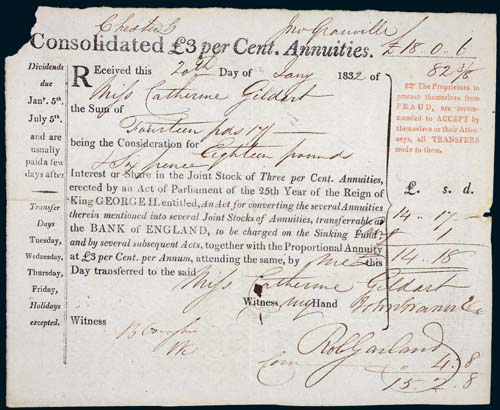 Chester
Jno Granville
£18.0.6
Consolidated £3 per Cent. Annuities.
82 3/8
Dividends
due
Jany. 5th.
July 5th.
and are
usually
paid few
days after
Transfer
Days
Tuesday,
Wednesday,
Thursday,
Friday,
Holidays
excepted.
Received this 20th Day of Jany 1832 of
Miss Catherine Gildart
the Sum of
Fourteen pds 17/-
being the Consideration for Eighteen pounds
& Six pence
Interest or Share in the Joint Stock of Three per Cent. Annuities,
erected by an Act of Parliament of the 25th Year of the Reign of
King GEORGE II. entitled, An Act for converting the several Annuities
therein mentioned into several Joint Stocks of Annuities, transferrable at
the BANK of ENGLAND, to be charged on the Sinking Fund;
and by several subsequent Acts, together with the Proportional Annuity
at £3 per Cent. per Annum, attending the same, by me this
Day transferred to the said
Miss Catherine Gildart
Witness my Hand
Witness
Rob Garland
The Proprietors to
protect themselves from
FRAUD, are recom-
mended to ACCEPT by
themselves or their Attor-
nies, all TRANSFERS
made to them.
£. s. d.
14 .. 17 -
1
14 .. 18
4.8
15 .. 2 .. 8